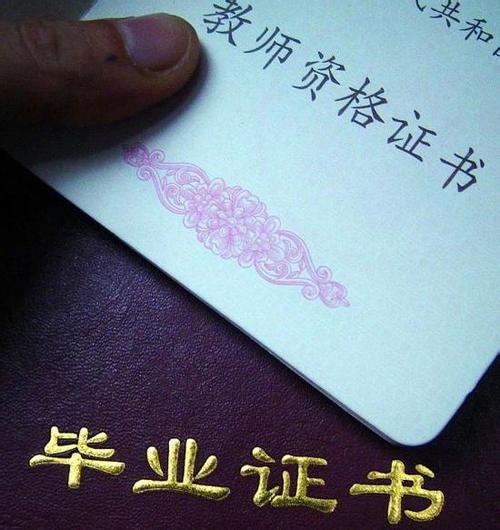 共和
教师资格证书
毕业证书